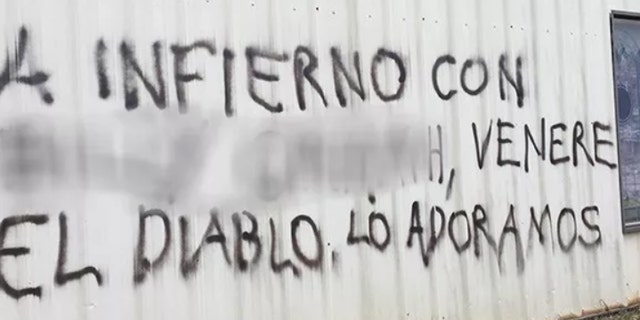 A INFIERNO CON
H, VENERE
EL DIABLO. LO ADORAMOS